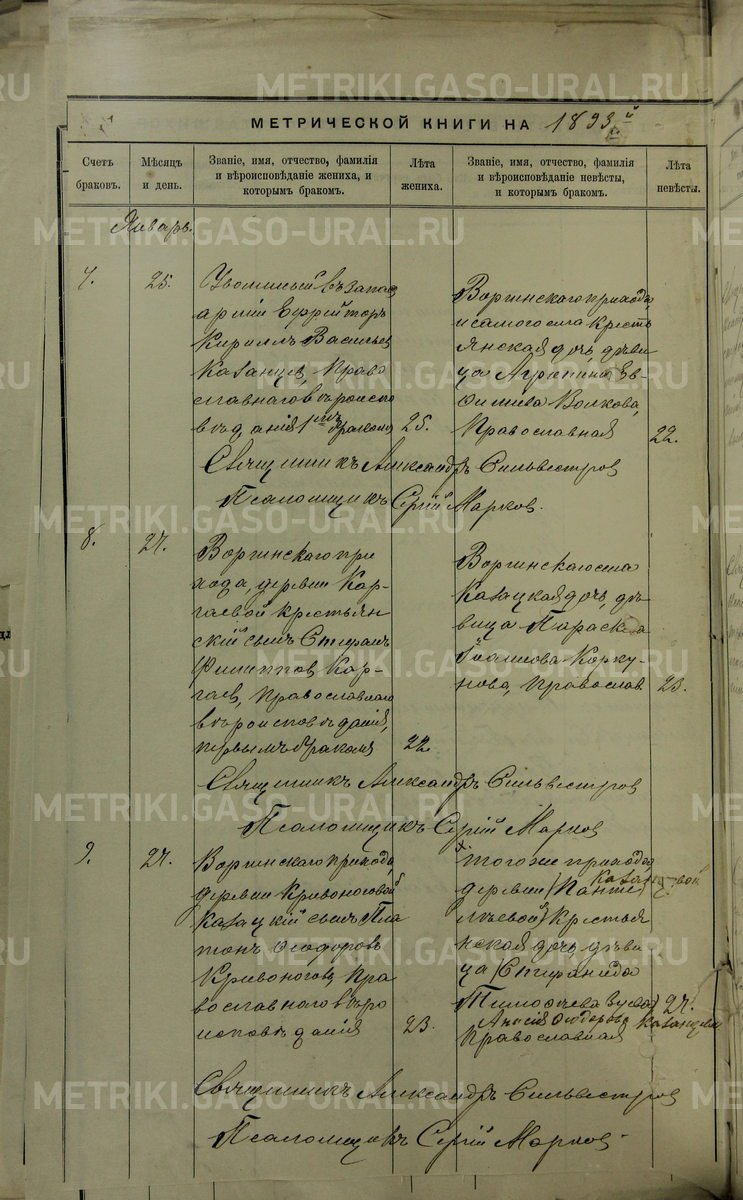 МЕТРИЧЕСКОЙ КНИГИ НА 1893й
Счетъ браковъ.
Мѣсяцъ и день.
Званіе, имя, отчество, фамилія и вѣроисповѣданіе жениха, и которымъ бракомъ.
Лѣта жениха.
Званіе, имя, отчество, фамилія и вѣроисповѣданіе невѣсты, и которымъ бракомъ.
Лѣта невѣсты.
Январь.
7.
25.
Уволенный въ запас
арміи Ефрейторъ
Кириллъ Васильев
Казанцев, Право
славнаго вѣроиспо
вѣданія 1мъ бракомъ
25.
Воргинскаго прихода,
и самого села кресть
янская дочь, дѣви
ца Агрипина Ев-
фимиева Волкова,
Православная
22.
Священникъ Александръ Сильвестров
Псаломщикъ Сергій Марков.
8.
27.
Воргинскаго при
хода, деревни Кор-
гаевой крестьян
скій сынъ Стефанъ
Филиппов Кор-
гаев, Православнаго
вѣроисповѣданія,
первымъ бракомъ
22.
Воргинскаго села
Казацкая дочь, дѣ
вица Параскева
Корку-
нова, Православ
23.
Священникъ Александръ Сильвестров
Псаломщикъ Сергій Марков
9.
27.
Воргинскаго прихода,
деревни Кривоноговой
Казацкій сынъ Пла
тонъ Феодоров
Кривоногов, Пра
вославнаго вѣро
исповѣданія
23.
Того же прихода,
деревни (Панте
Казанцевой
лѣевой) Крестья
нская дочь, дѣви
ца (Стефанида
Тимофеева
27.
Анисія Феодорова Казанцева
Православная
Священникъ Александръ Сильвестров
Псаломщикъ Сергій Марков
METRIKI.GASO-URAL.RU